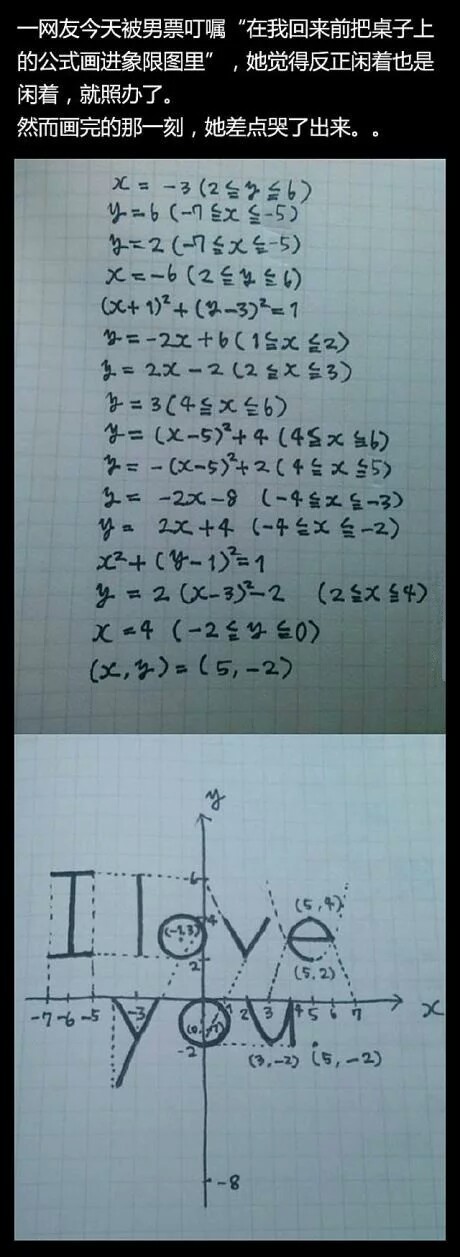 一网友今天被男票叮嘱“在我回来前把桌子上
的公式画进象限图里”，她觉得反正闲着也是
闲着，就照办了。
然而画完的那一刻，她差点哭了出来。。
x = -3 (2 ≦ y ≦ 6)
y = 6 (-7 ≦ x ≦ -5)
y = 2 (-7 ≦ x ≦ -5)
x = -6 (2 ≦ y ≦ 6)
(x+1)² + (y-3)² = 1
y = -2x + 6 (1 ≦ x ≦ 2)
y = 2x - 2 (2 ≦ x ≦ 3)
y = 3 (4 ≦ x ≦ 6)
y = (x-5)² + 4 (4 ≦ x ≦ 6)
y = -(x-5)² + 2 (4 ≦ x ≦ 5)
y = -2x - 8 (-4 ≦ x ≦ -3)
y = 2x + 4 (-4 ≦ x ≦ -2)
x² + (y-1)² = 1
y = 2 (x-3)² - 2 (2 ≦ x ≦ 4)
x = 4 (-2 ≦ y ≦ 0)
(x, y) = (5, -2)
y
6
I love
(5,4)
4
(-1,3)
2
(5,2)
-7 -6 -5 -3 1 2 3 4 5 6 7 x
you
-2
(3,-2) (5,-2)
-8